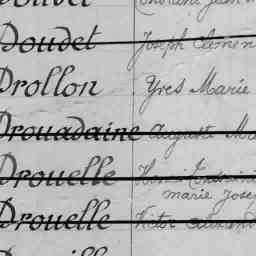 Doudet Joseph Clémen
Drollon Yves Marie
Drouadaine Auguste Ma
Drouelle Henri
marie Josep
Drouelle Victor